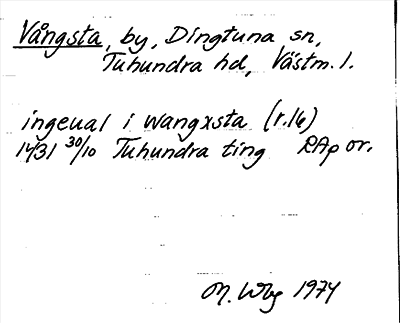 Vångsta, by, Dingtuna sn,
Tuhundra hd, Västm. l.
ingeual i wangxsta (r.16)
1431 30/10 Tuhundra ting RAp or.
M. Wbg 1974